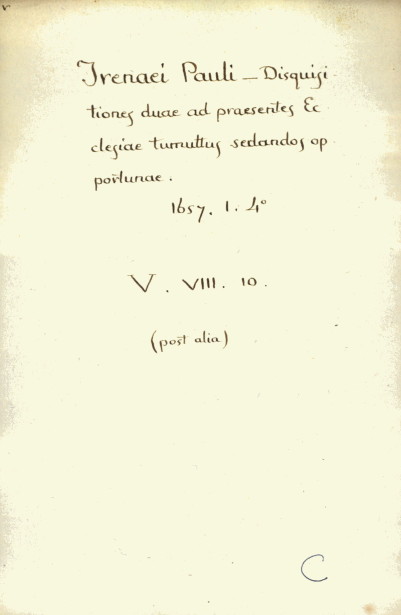 Irenaei Pauli — Disquisi
tiones duae ad praesentes Ec
clesiae tumultus sedandos op
portunae.
1657. 1. 4°
V. VIII. 10.
(post alia)
C